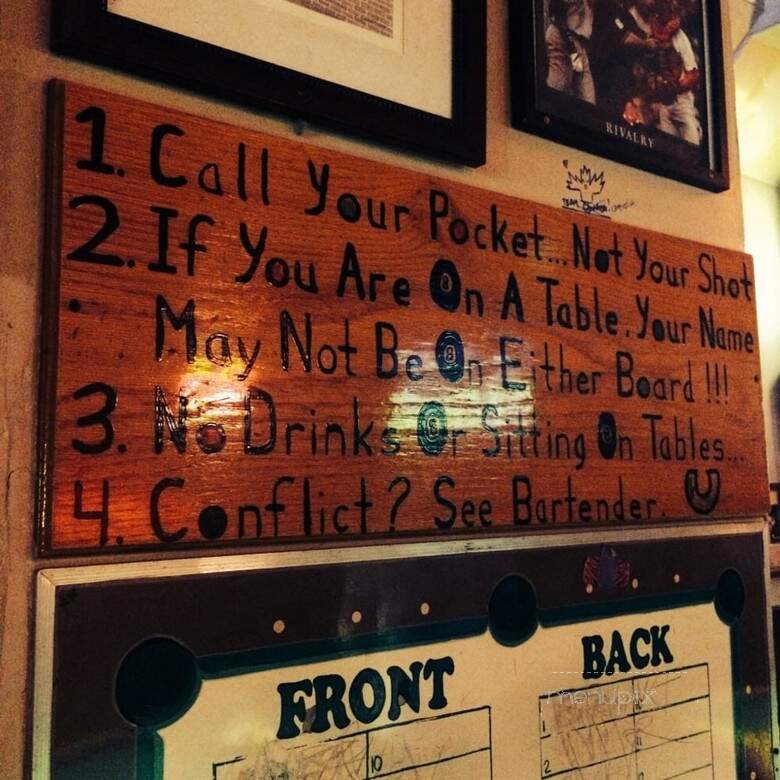 RIVALRY
TEAM
1. Call Your Pocket... Not Your Shot
2. If You Are On A Table, Your Name
May Not Be On Either Board !!!
3. No Drinks Or Sitting On Tables...
4. Conflict? See Bartender.
FRONT
BACK
menupix
10
1
2